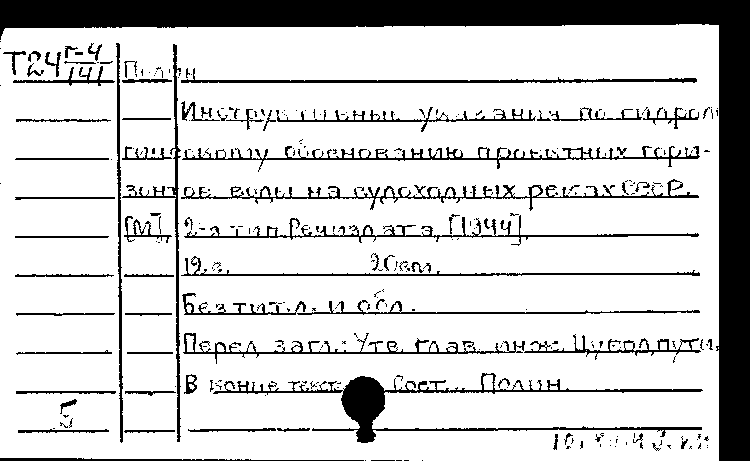 Т24 Г-4/141 Полин
Инструктивные указания по гидроло
гическому обоснованию проектных гори-
зонтов воды на судоходных реках СССР.
[М], 2-я тип. Речиздата, [1944].
19 с. 20 см.
Без тит. л. и обл.
Перед загл.: Утв. глав. инж. Цуводпути.
В конце текста: Сост... Полин.
5